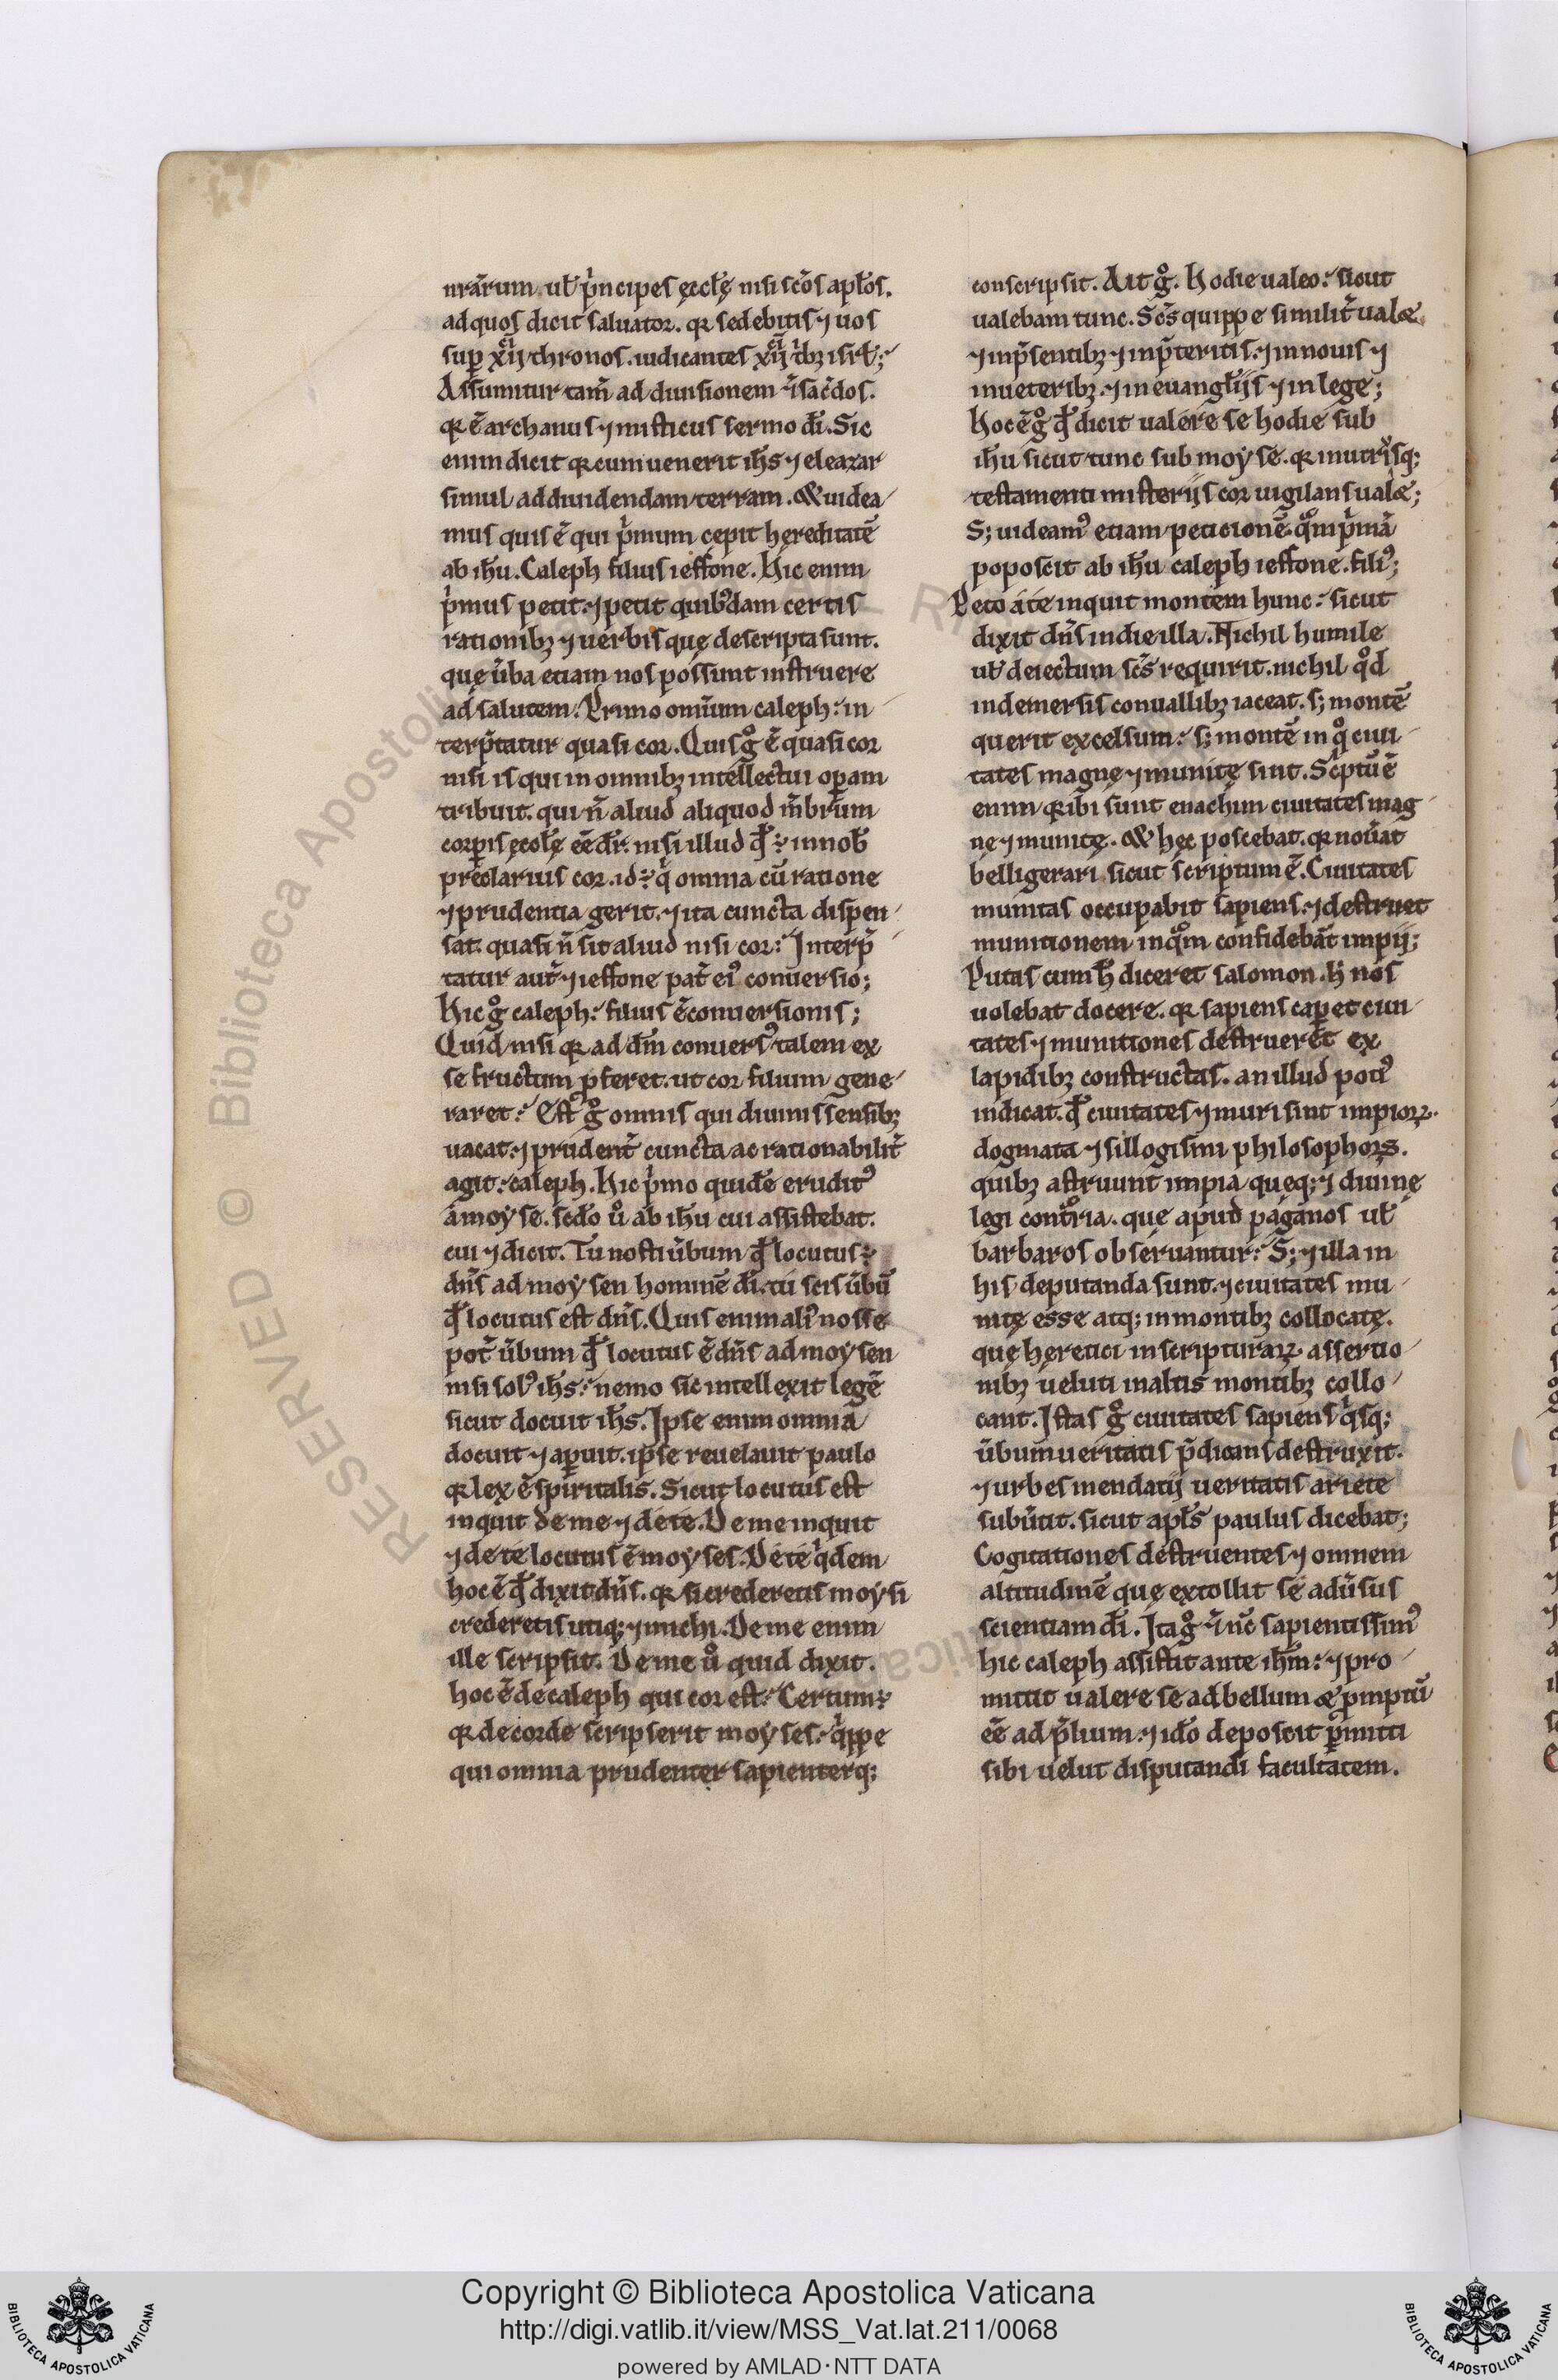 nrãrum. ul̃ p̾ncipes ęccl̃ę nisi sc̃os apl̃os.
ad quos dicit saluator. qꝛ sedebitis ⁊ uos
suꝑ xij thronos. iudicantes xij t̾bꝫ isrl̃;
Assumitur tam̃ ad diuisionem t̾re sac̃dos.
qꝛ ẽ archanus ⁊ misticus sermo dĩ. Sic
enim dicit qꝛ cum uenerit ih̃s ⁊ eleazar
simul addiuidendam terram. & uidea
mus quis ẽ qui p̾mum cepit hereditatẽ
ab ih̃u. Caleph filius ieffone. Hic enim
p̾mus petit. ⁊ petit quibꝰdam certis
rationibꝫ ⁊ uerbis quę descripta sunt.
quę ũba etiam nos possunt instruere
ad salutem. Primo omnium caleph: in
terp̃tatur quasi cor. Quis gͦ ẽ quasi cor
nisi is qui in omnibꝫ intellectui oꝑam
tribuit. qui ñ aliud aliquod m̃brum
corꝑis ęccl̃ę ẽe dr̃. nisi illud qđ ÷ in nob̃
preclarius cor. id ÷ q̾ omnia cũ ratione
⁊ prudentia gerit. ⁊ ita cuncta dispen
sat. quasi ñ sit aliud nisi cor: Interp̃
tatur aut̃ ⁊ ieffone pat̃ eiꝰ conuersio;
Hic gͦ caleph: filius ẽ conuersionis;
Quid nisi qꝛ ad dñm conuersꝰ talem ex
se fructum ꝓferet. ut cor filium gene
raret: Est gͦ omnis qui diuinis sensibꝫ
uacat. ⁊ prudent̃ cuncta ac rationabilit̃
agit: caleph. Hic p̾mo quidẽ eruditꝰ
a moyse. scd̃o uͦ ab ih̃u cui assistebat.
cui ⁊ dicit. Tu nosti ũbum qđ locutus ÷
dñs ad moysen hominẽ dĩ. tu scis ũbũ
qđ locutus est dñs. Quis enim aliꝰ nosse
pot̃ ũbum qđ locutus ẽ dñs ad moysen
nisi solꝰ ih̃s: nemo sic intellexit legẽ
sicut docuit ih̃s. Ipse enim omnia
docuit ⁊ aꝑuit. ipse reuelauit paulo
qꝛ lex ẽ spiritalis. Sicut locutus est
inquit de me ⁊ de te. De me inquit
⁊ de te locutus ẽ moyses. De te q̾dem
hoc ẽ qđ dixit dñs. qꝛ si crederetis moysi
crederetis utiqꝫ ⁊ michi. De me enim
ille scripsit. De me uͦ quid dixit.
hoc ẽ de caleph qui cor est: Certum ÷
qꝛ de corde scripserit moyses: q̾ppe
qui omnia prudenter sapienterqꝫ
conscripsit. Ait gͦ. Hodie ualeo: sicut
ualebam tunc. Sc̃s quippe similit̃ ual&.
⁊ in p̃sentibꝫ ⁊ in p̃teritis. ⁊ in nouis ⁊
in ueteribꝫ. ⁊ in euangl̃ijs ⁊ in lege;
Hoc ẽ gͦ qđ dicit ualere se hodie sub
ih̃u sicut tunc sub moyse. qꝛ in utrisqꝫ
testamenti misterijs cor uigilans ual&;
S; uideamꝰ etiam peticionẽ. qͦm p̾mã
poposcit ab ih̃u caleph ieffone. filiꝰ;
Peto a te inquit montem hunc: sicut
dixit dñs in die illa. Nichil humile
ul̃ deiectum sc̃s requirit. nichil qͦd
in demersis conuallibꝫ iaceat. s; montẽ
querit excelsum: s; montẽ in qͦ ciui
tates magnę ⁊ munitę sint. Sc̾ptũ ẽ
enim qꝛ ibi sunt enachim ciuitates mag
nę ⁊ munitę. & hęc poscebat. qꝛ nouãt
belligerari sicut scriptum ẽ. Ciuitates
munitas occupabit sapiens. ⁊ destruet
munitionem in qͣm confidebãt impij;
Putas cum h̃ diceret salomon. h̾ nos
uolebat docere. qꝛ sapiens caꝑet ciui
tates ⁊ munitiones destrueret ex
lapidibꝫ constructas. an illud potiꝰ
indicat. qđ ciuitates ⁊ muri sint impioꝝ.
dogmata ⁊ sillogismi philosophoꝝ.
quibꝫ astruunt impia quęqꝫ ⁊ diuinę
legi contͣria. quę apud paganos ul̃
barbaros obseruantur: S; ⁊ illa in
his deputanda sunt. ⁊ ciuitates mu
nitę esse atqꝫ in montibꝫ collocatę.
quę heretici in scripturaꝝ assertio
nibꝫ ueluti in altis montibꝫ collo
cant. Istas gͦ ciuitates sapiens q̾sqꝫ
ũbum ueritatis p̃dicans destruxit.
⁊ urbes mendatij ueritatis ariete
subũtit. sicut apl̃s paulus dicebat;
Cogitationes destruentes ⁊ omnem
altitudinẽ quę extollit se adũsus
scientiam dĩ. Ita gͦ ⁊ nc̃ sapientissimꝰ
hic caleph assistit ante ih̃m: ⁊ pro
mittit ualere se ad bellum & ꝓmptũ
ẽe ad p̃lium. ⁊ id̃o deposcit ꝑmitti
sibi uelut disputandi facultatem.
RESERVED © Biblioteca Apostolica
Copyright © Biblioteca Apostolica Vaticana
http://digi.vatlib.it/view/MSS_Vat.lat.211/0068
powered by AMLAD·NTT DATA
BIBLIOTECA APOSTOLICA VATICANA
BIBLIOTECA APOSTOLICA VATICANA